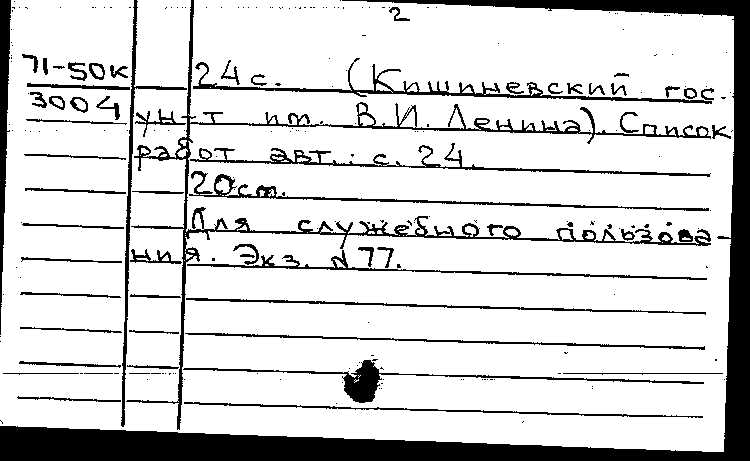 2
71-50к 24 с. (Кишиневский гос.
3004 ун-т им. В.И. Ленина). Список
работ авт.: с. 24.
20 см.
Для служебного пользова-
ния. Экз. N 77.